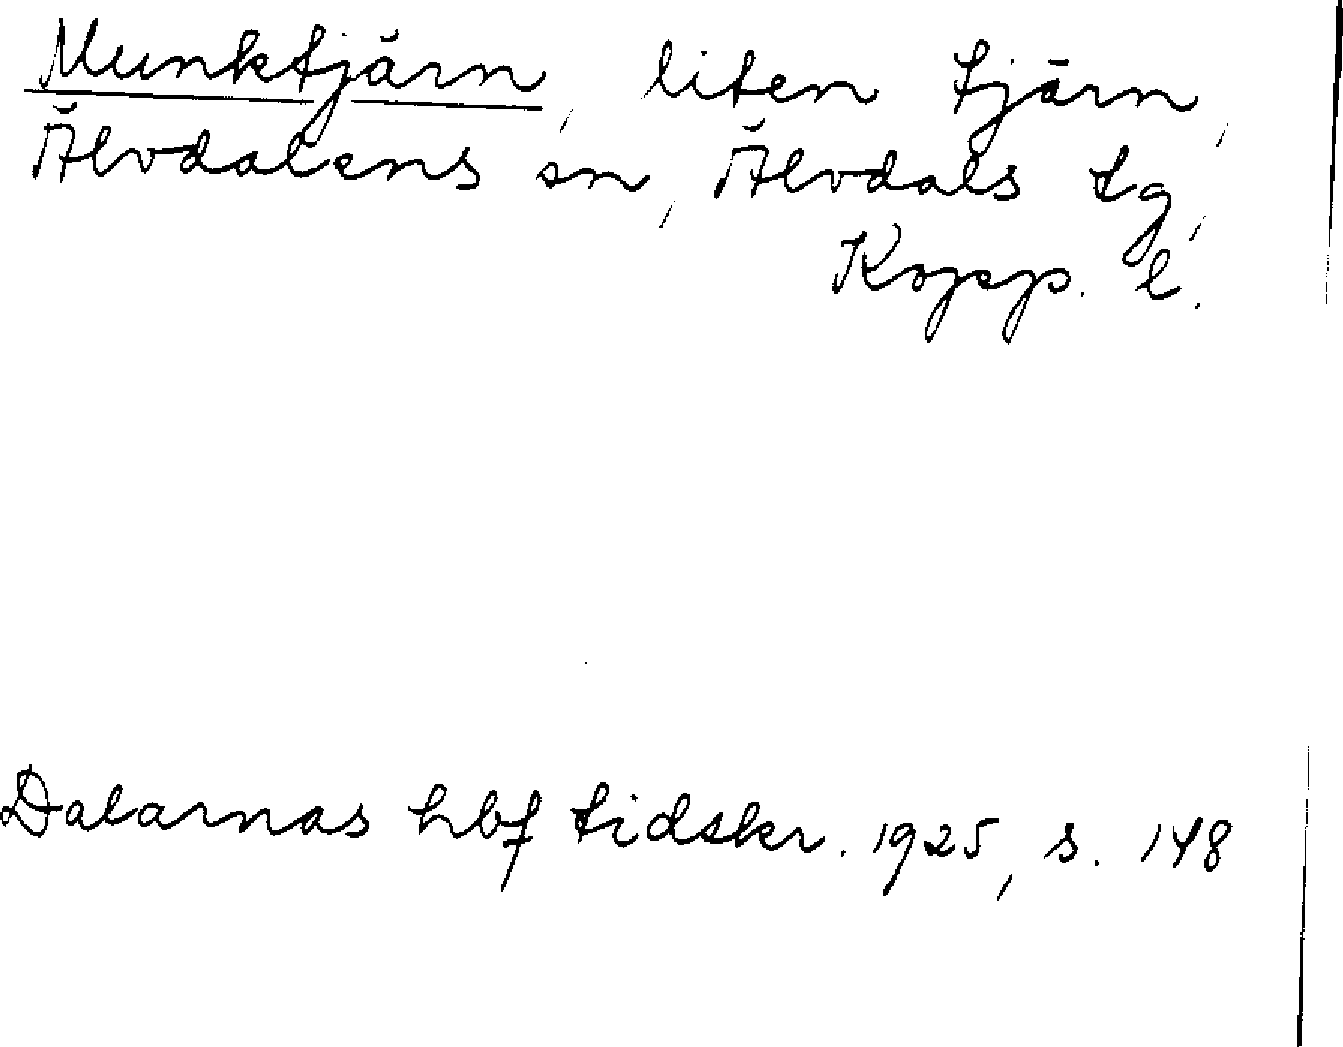 Munktjärn, liten tjärn,
Älvdalens sn, Älvdals tg,
Kopp. l.
Dalarnas hbf tidskr. 1925, s. 148